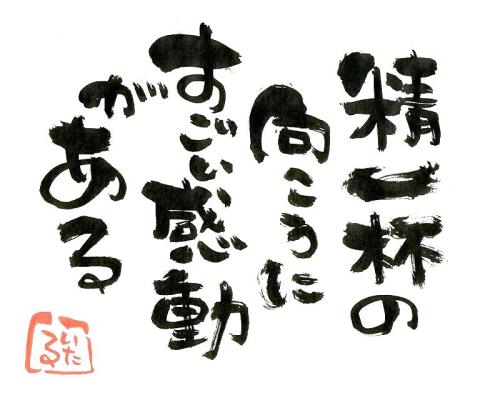 精一杯の
向こうに
すごい感動
がある
いたる